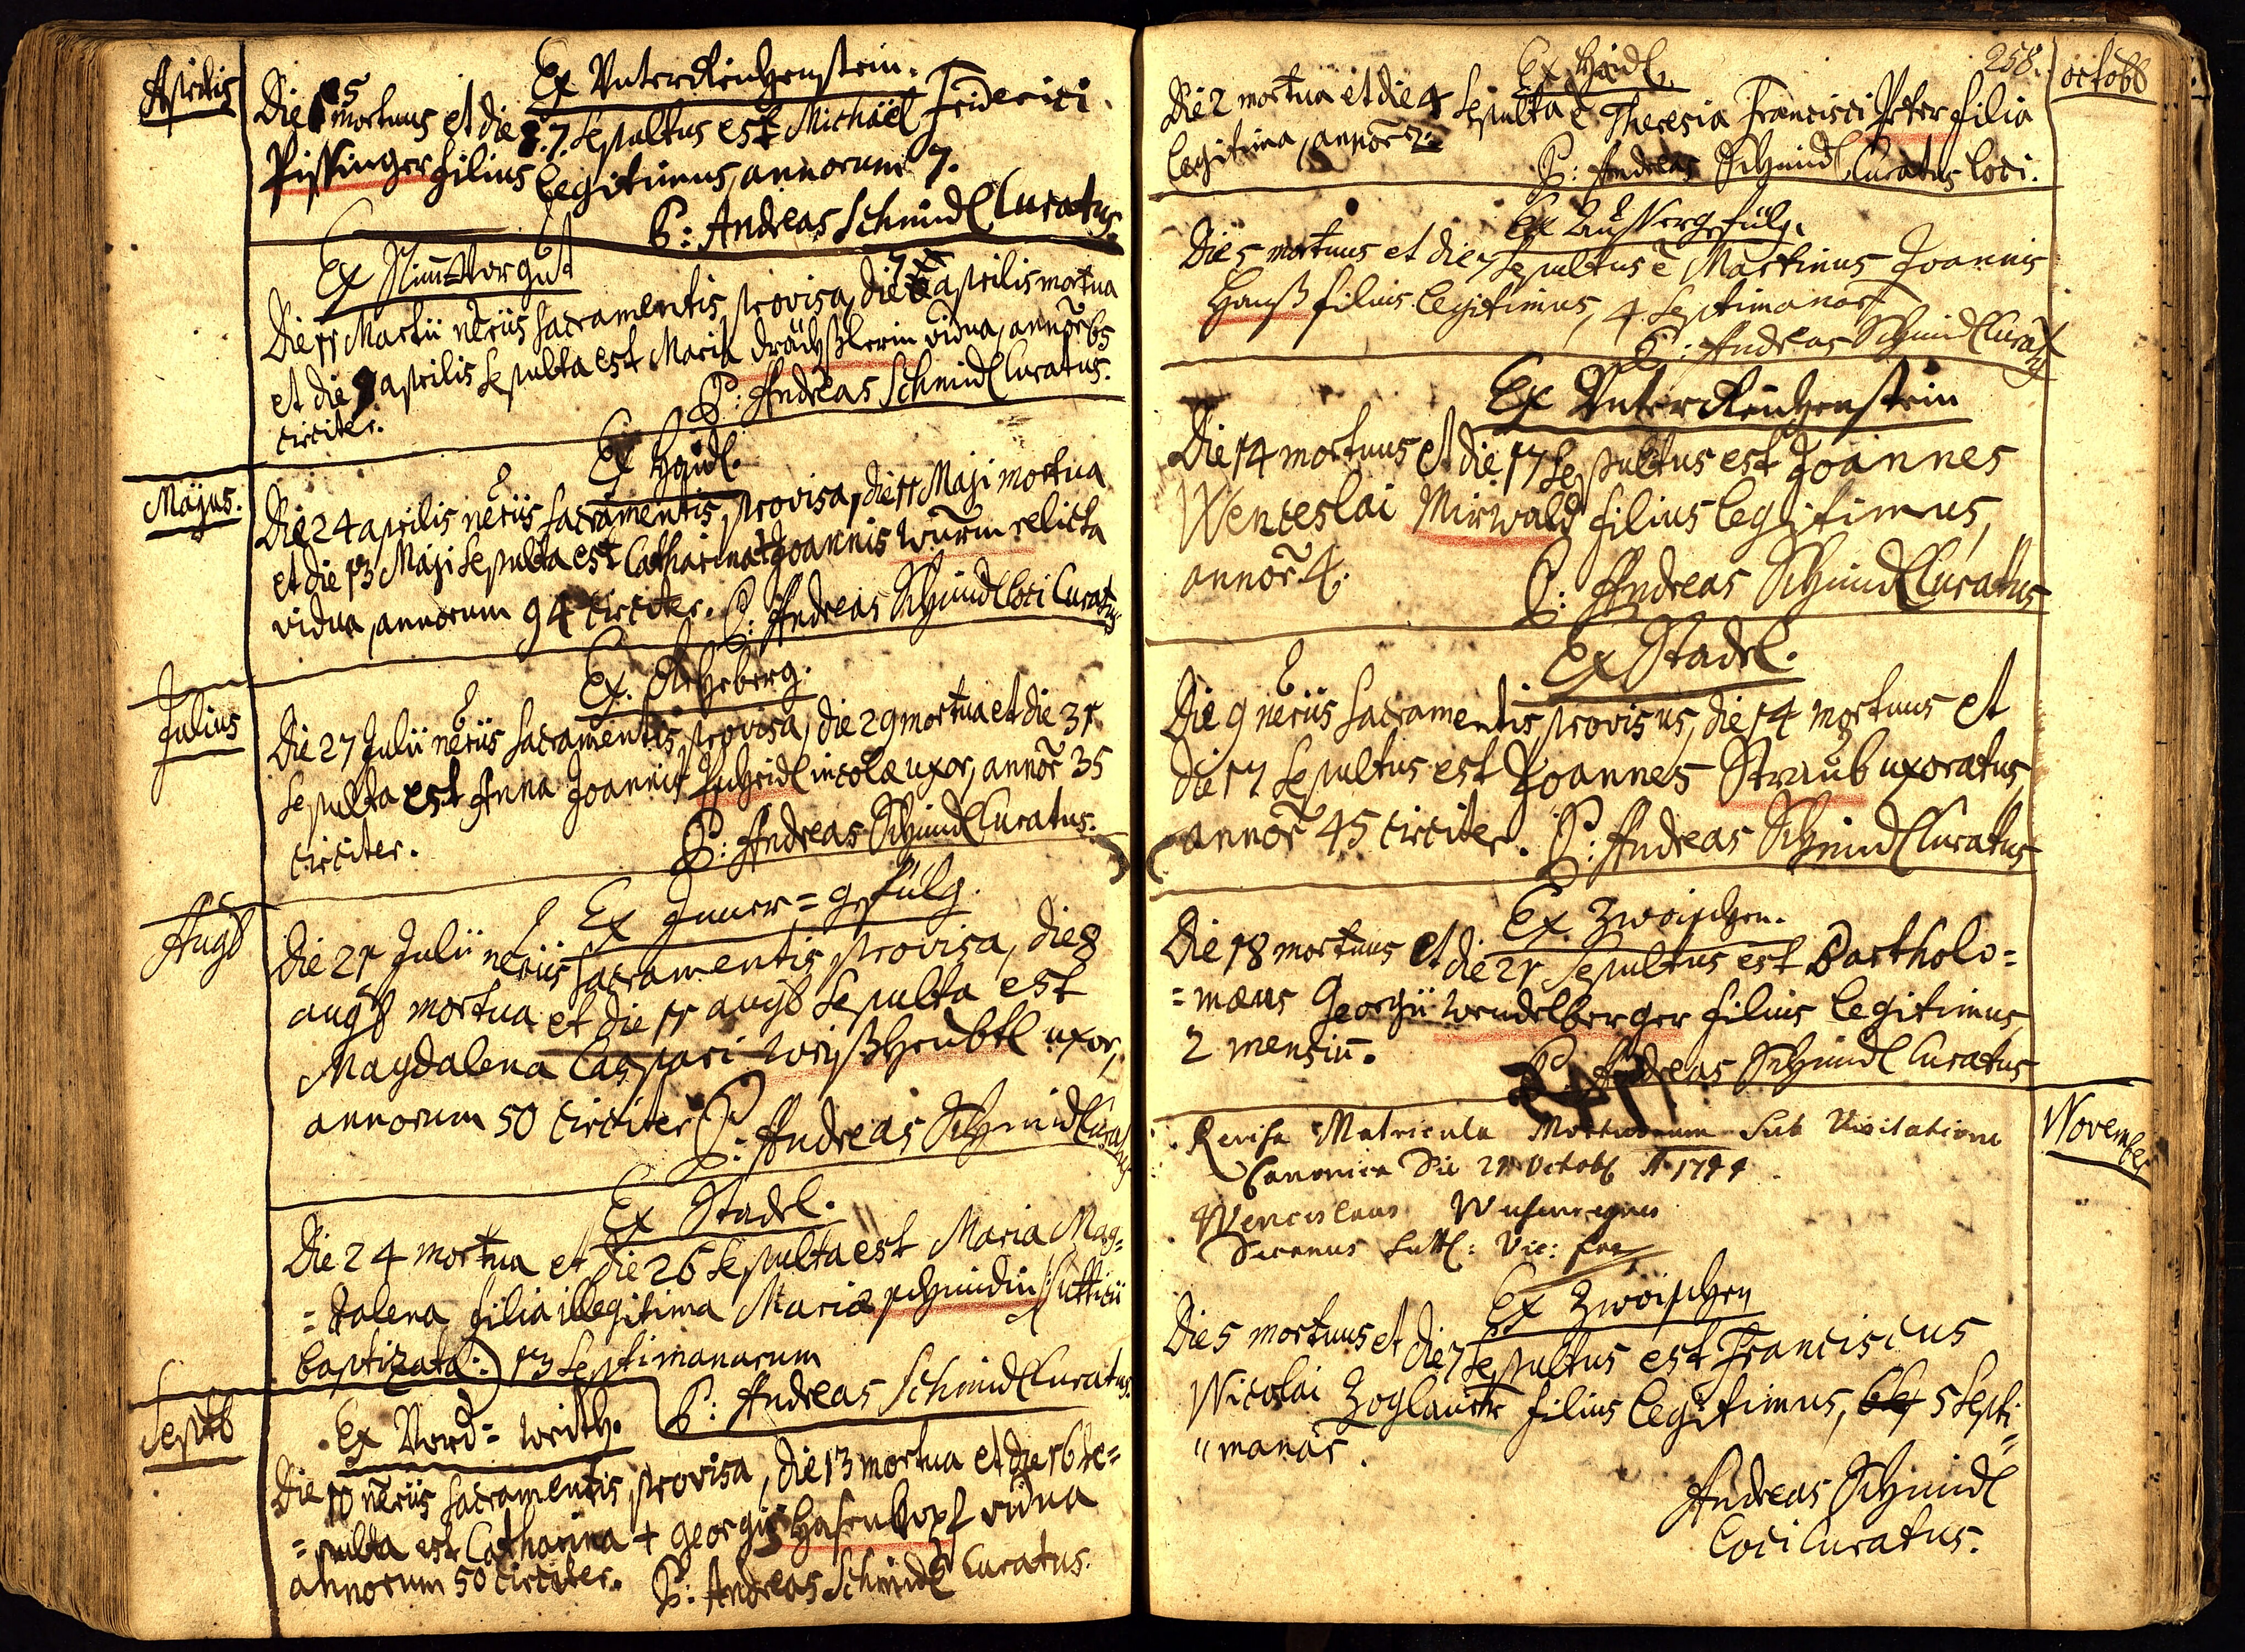 Aprilis
Ex Unterreichenstein.
Die 5 mortuus et die 7. sepultus est Michaël Friderici
Pissinger filius legitimus, annorum 7.
P: Andreas Schmidl Curatus.
Ex
Die 11 Martii nēriis sacramentis provisa, die 7 aprilis mortua
et die 9 aprilis sepulta est Maria Drächslerin vidua, annor̄ 65
circiter.
P: Andreas Schmidl Curatus.
Majus.
Ex Haidl.
Die 24 aprilis nēriis sacramentis provisa, die 11 Maji mortua
et die 13 Maji sepulta est Catharina + Joannis Wurm relicta
vidua, annorum 94 circiter. P: Andreas Schmidl loci Curatus
Julius
Ex Rehberg.
Die 27 Julii nēriis sacramentis provisa, die 29 mortua et die 31
sepulta est Anna Joannis incolæ uxor, annor̄ 35
circiter.
P: Andreas Schmidl Curatus.
Augȣ
Ex Inner=gefülg.
Die 21 Julii nēriis sacramentis provisa, die 8
augȣ mortua et die 11 augȣ sepulta est
Magdalena Caspari Weyßheubtl uxor,
annorum 50 circiter P: Andreas Schmidl Curatus
Ex Stadl.
Die 24 mortua et die 26 sepulta est Maria Mag=
=dalena filia illegitima Mariæ Schmidin
baptizata:) 13 septimanarum
P: Andreas Schmidl Curatus.
Septb
Ex Vord=
Die 10 nēriis sacramentis provisa, die 13 mortua et die 16 se=
=pulta est Catharina + Georgij Hasenkopf vidua
annorum 50 circiter. P: Andreas Schmidl Curatus.
258.
octobȣ
Ex Haidl.
Die 2 mortua et die 4 sepulta ē Theresia Francisci Peter filia
legitima, annor̄ 2.
P: Andreas Schmidl Curatus loci.
Ex Aussergefülg.
Die 5 mortuus et die 7 sepultus ē Martinus Joannis
Hauß filius legitimus, 4 septimanar̄
P: Andreas Schmidl Curatus
Ex Unterreichenstein
Die 14 mortuus et die 17 sepultus est Joannes
Wenceslai Mirwald filius legitimus,
annor̄ 4.
P: Andreas Schmidl Curatus
Ex Stadl.
Die 9 nēriis sacramentis provisus, die 14 mortuus et
die 17 sepultus est Joannes Straub uxoratus,
annor̄ 45 circiter. P: Andreas Schmidl Curatus
Ex Zwoischen.
Die 18 mortuus et die 21 sepultus est Bartholo=
=mæus Georgii Wendelberger filius legitimus,
2 mensiū.
P: Andreas Schmidl Curatus
November
Revisa Matricula Mortuorum sub Visitatione
Canonica die 21 Octobȣ
Wenceslaus
Decanus Vic:
Ex Zwoischen
Die 5 mortuus et die 7 sepultus est Franciscus
Nicolai Zoglauer filius legitimus, 5 septi=
"manar̄.
Andreas Schmidl
loci Curatus.